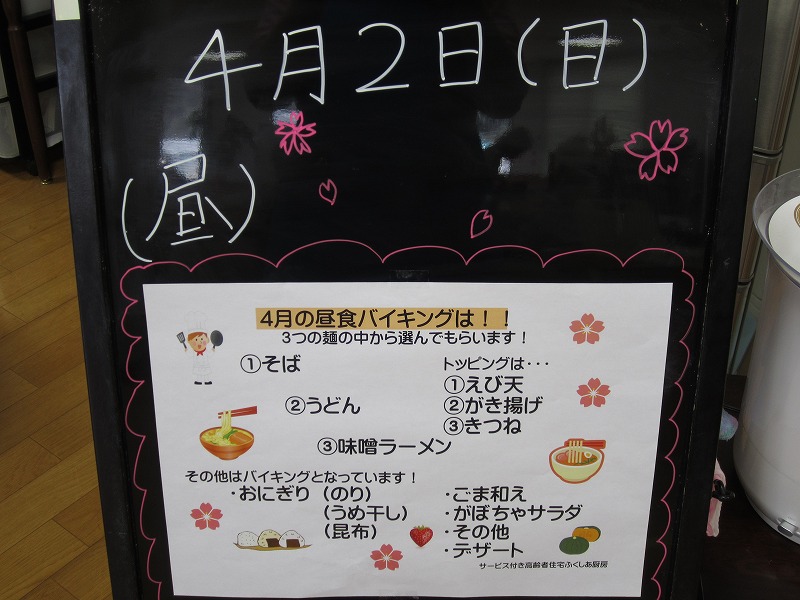 4月2日(日)
(昼)
4月の昼食バイキングは!!
3つの麺の中から選んでもらいます!
①そば
②うどん
③味噌ラーメン
トッピングは・・・
①えび天
②がき揚げ
③きつね
その他はバイキングとなっています!
・おにぎり(のり)
(うめ干し)
(昆布)
・ごま和え
・がぼちゃサラダ
・その他
・デザート
サービス付き高齢者住宅ふくしあ厨房